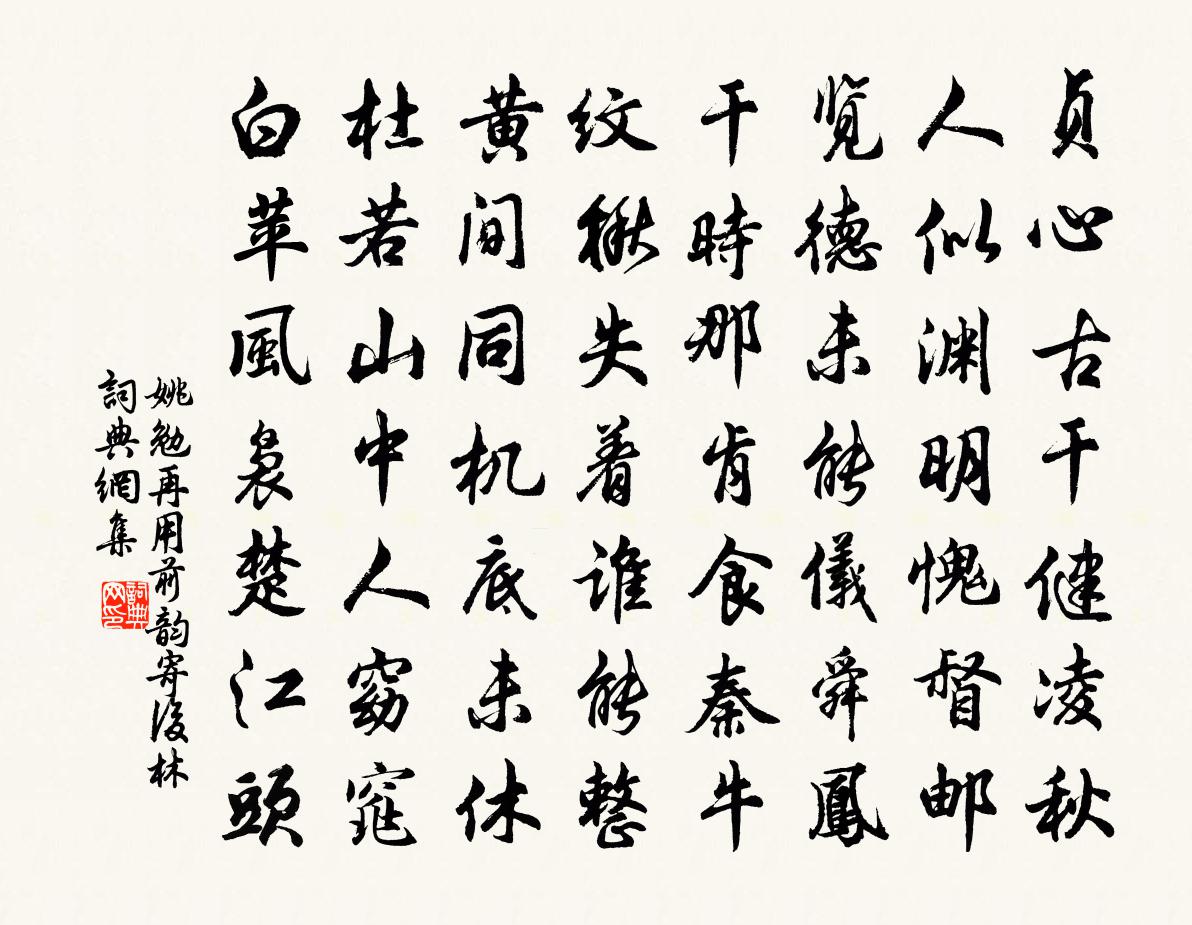 贞心古干健凌秋
人似渊明愧督邮
览德未能仪舜鳳
干時那肯食秦牛
纹楸失着谁能整
黄间同机底未休
杜若山中人窈窕
白苹風袅楚江頭
姚勉再用前韵寄後林
詞典網集
詞典网印